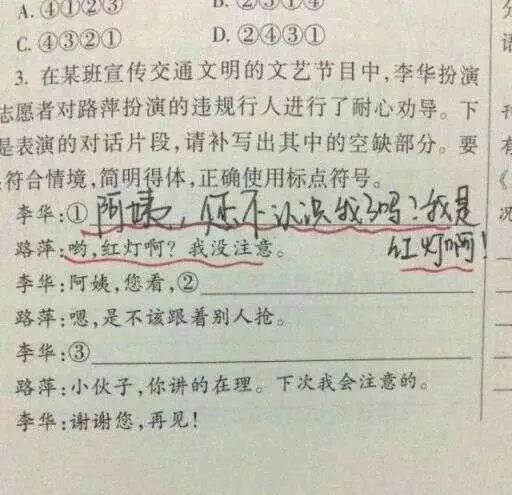 A. ④①②③
B. ②③①④
C. ④③②①
D. ②④③①
3. 在某班宣传交通文明的文艺节目中,李华扮演
志愿者对路萍扮演的违规行人进行了耐心劝导。下
是表演的对话片段,请补写出其中的空缺部分。要
符合情境,简明得体,正确使用标点符号。
李华:①阿姨,您不认识我了吗?我是
红灯啊!
路萍:哟,红灯啊?我没注意。
李华:阿姨,您看,②
路萍:嗯,是不该跟着别人抢。
李华:③
路萍:小伙子,你讲的在理。下次我会注意的。
李华:谢谢您,再见!
语
有
《
况